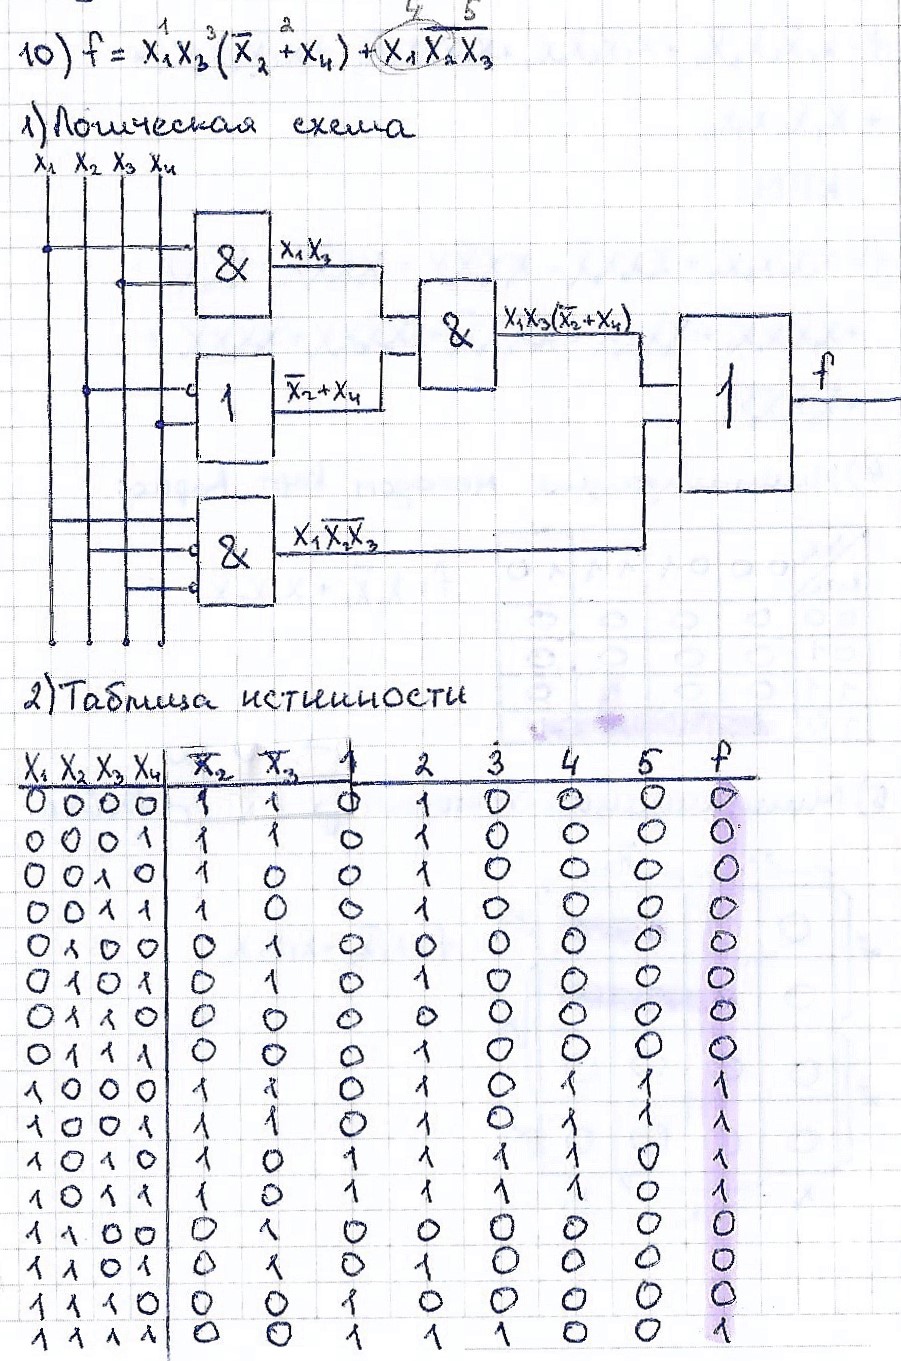 1 3 2 4 5
10) f = X₁X₃(X̅₂ + X₄) + X₁X̅₂X̅₃
1) Логическая схема
X₁ X₂ X₃ X₄
& X₁X₃
& X₁X₃(X̅₂+X₄)
1 f
1 X̅₂+X₄
& X₁X̅₂X̅₃
2) Таблица истинности
X₁ X₂ X₃ X₄ X̅₂ X̅₃ 1 2 3 4 5 f
0 0 0 0 1 1 0 1 0 0 0 0
0 0 0 1 1 1 0 1 0 0 0 0
0 0 1 0 1 0 0 1 0 0 0 0
0 0 1 1 1 0 0 1 0 0 0 0
0 1 0 0 0 1 0 0 0 0 0 0
0 1 0 1 0 1 0 1 0 0 0 0
0 1 1 0 0 0 0 0 0 0 0 0
0 1 1 1 0 0 0 1 0 0 0 0
1 0 0 0 1 1 0 1 0 1 1 1
1 0 0 1 1 1 0 1 0 1 1 1
1 0 1 0 1 0 1 1 1 1 0 1
1 0 1 1 1 0 1 1 1 1 0 1
1 1 0 0 0 1 0 0 0 0 0 0
1 1 0 1 0 1 0 1 0 0 0 0
1 1 1 0 0 0 1 0 0 0 0 0
1 1 1 1 0 0 1 1 1 0 0 1